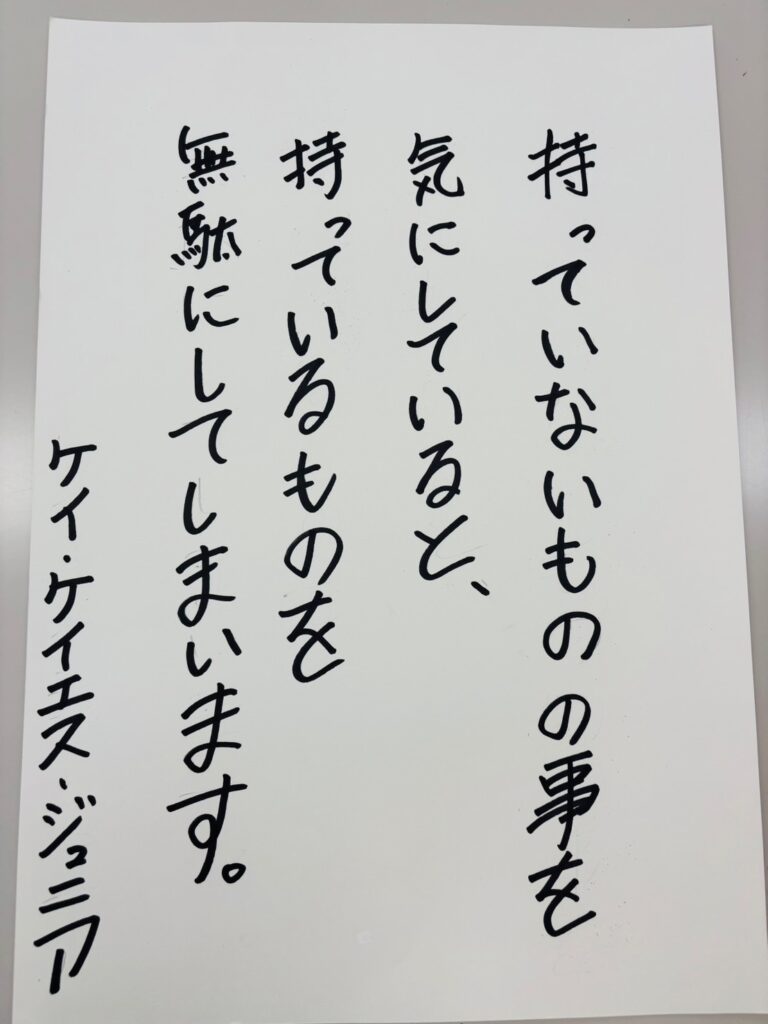 持っていないものの事を
気にしていると、
持っているものを
無駄にしてしまいます。
ケイ・ケイエス・ジュニア